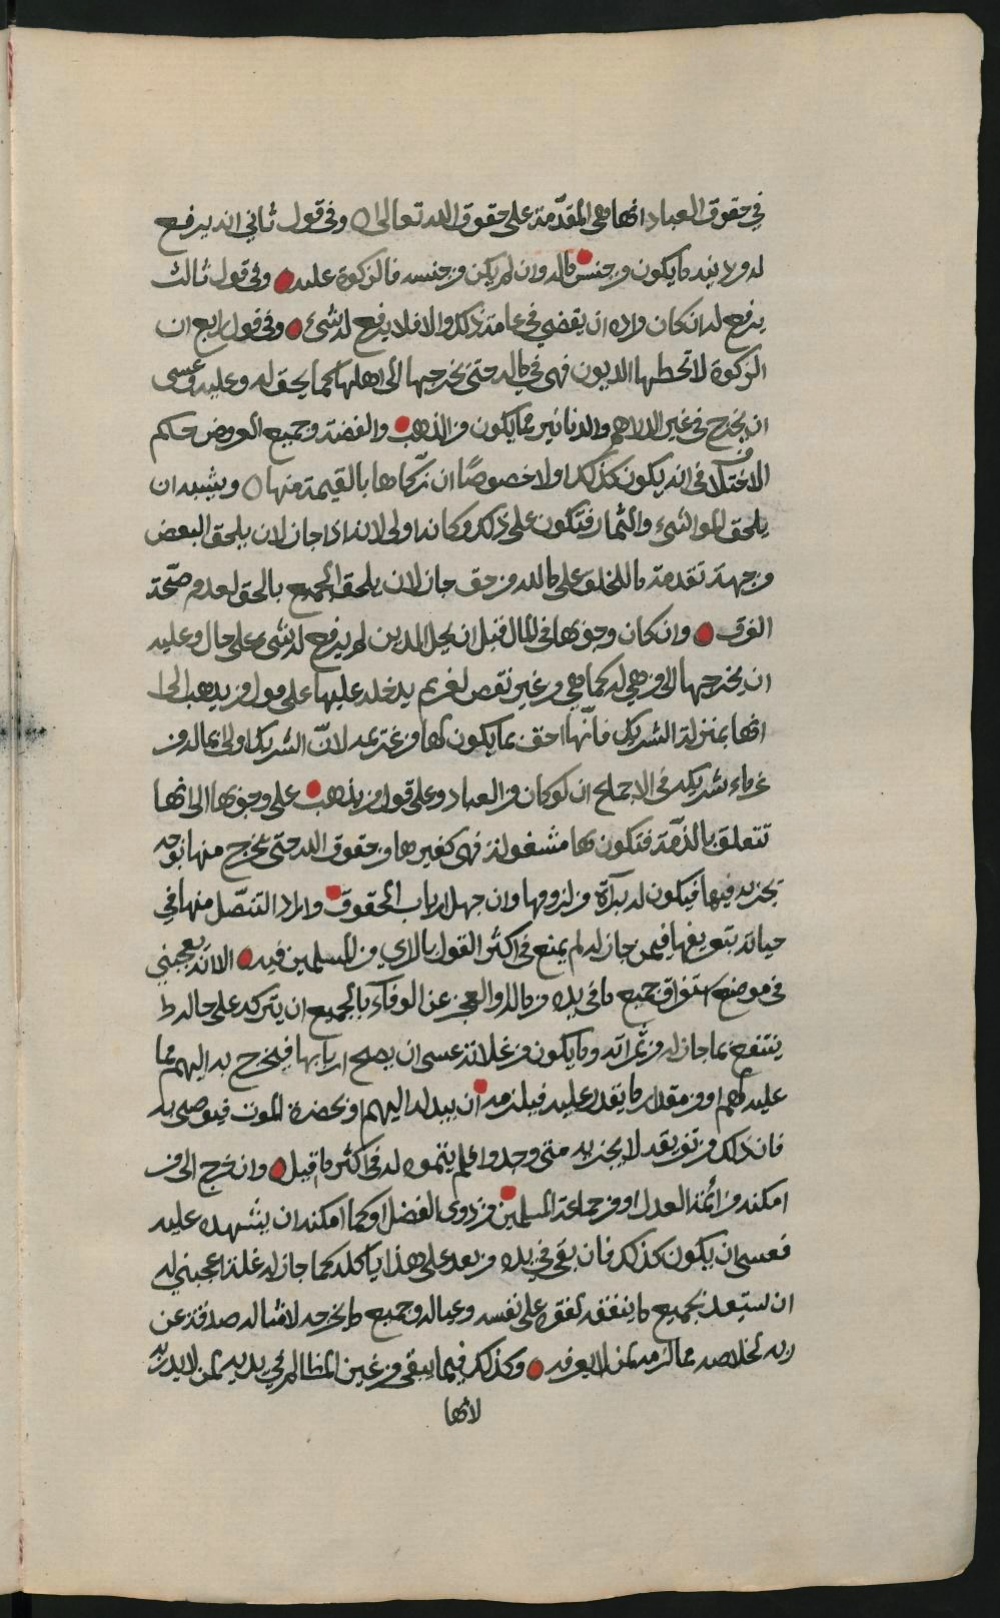 في حقوق العباد انها هي المقدّمة على حقوق الله تعالى وفي قول ثاني انه يرفع
له ودينه ما يكون من جنس ماله وان لم يكن من جنسه فالزكوة عليه وفي قول ثالث
يرفع له ان كان مراده ان يقضي في عامه ذلك والا فلا يرفع له شيء وفي قول رابع ان
الزكوة لا تحطها الديون فهي في ماله حتى يخرجها الى اهلها كما يحق له وعليه وعسى
ان يخرج في غير الدراهم والدنانير مما يكون من الذهب والفضة وجميع العروض حكم
الاختلاف في انه يكون كذلك اولا خصوصًا ان زكاها بالقيمة منها ويشبه ان
يلحق المواشيء والثمار فتكون على ذلك وكانه اولى لانه اذا جاز لان يلحق البعض
من جهة تقدمة ما للخلق على ما لله من حق جاز لان يلحق الجميع بالحق لعدم صحّة
الفرق وان كان وجوبها في المال قبل ان يحل الدين لم يرفع له شيء على حال وعليه
ان يخرجها الى من هي له كما هي من غير نقص لغريم يدخله عليها على قول من يذهب الى
انها بمنزلة الشريك فانّها احق بما يكون لها من غريمه لانّ الشريك اولى بماله من
غرماء شريكه في الاجماع ان لو كان من العباد وعلى قول من يذهب على وجوبها الى انها
تتعلق بالذمّة فتكون بها مشغولة فهي كغيرها من حقوق الله حتى يخرج منها بوجه
يجزيه فيها فيكون له براة من لزومها وان جهل ارباب الحقوق واراد التنصّل منها في
حياته بتفريقها فيمن جاز له لم يمنع في اكثر القول بالراي من المسلمين فيه الا انه يعجبني
في موضع استغراق جميع ما في يده من مال والعجز عن الوفاء بالجميع ان يتركه على حاله
ينتفع بما جاز له من ثمراته وما يكون من غلاته عسى ان يصح اربابها فيخرج به اليهم مما
عليه لهم او من مقدار ما يقدر عليه فيلزمه ان يبدله اليهم او بحضرة الموت فيوصي به
فان ذلك من تفريقه لا يجزيه متى وجدوا فلم يتموه له في اكثر ما قيل وان خرج الى من
امكنه من ائمة العدل او من جماعة المسلمين من ذوي الفضل او كما امكنه ان يشهده عليه
فعسى ان يكون كذلك فان بقي في يده من بعد على هذا ياكله كما جاز له غلة اعجبني له
ان يستعد بجميع ما ينفقه لفقره على نفسه وعياله وجميع ما يخرجه لامثاله صدقة عن
ربه لخلاصه مما لزمه لمن لا يعرفه وكذلك فيما يبقى من غير المظالم في يديه لمن لا يدريه
لانها